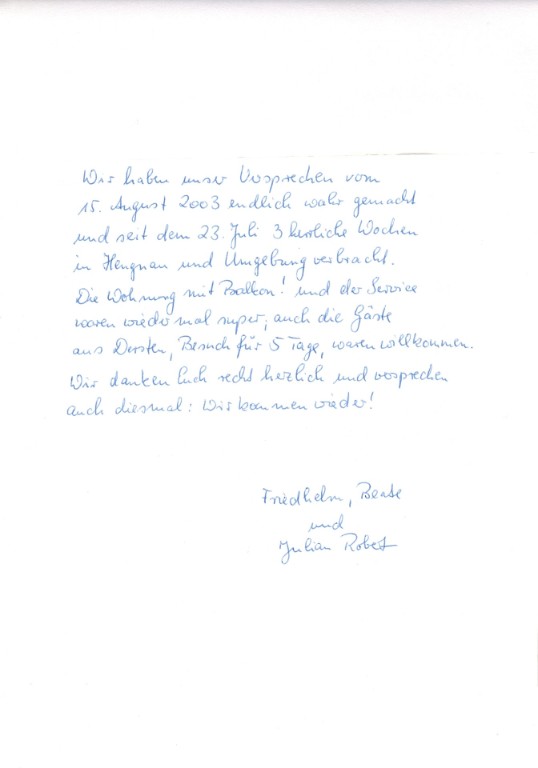 Wir haben unser Versprechen vom
15. August 2003 endlich wahr gemacht
und seit dem 23. Juli 3 herrliche Wochen
in Hengnau und Umgebung verbracht.
Die Wohnung mit Balkon! und der Service
waren wieder mal super, auch die Gäste
aus Dorsten, Besuch für 5 Tage, waren willkommen.
Wir danken Euch recht herzlich und versprechen
auch diesmal: Wir kommen wieder!
Friedhelm, Beate
und
Julian Robert